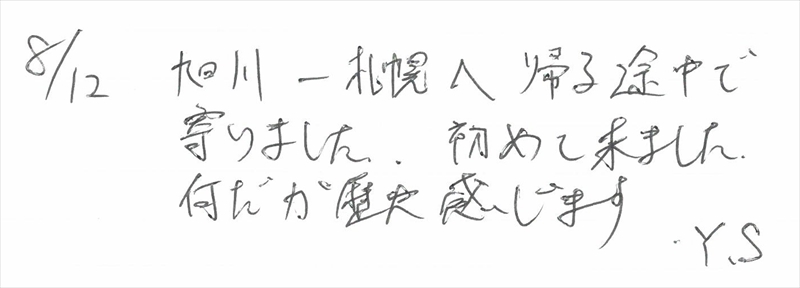 8/12 旭川－札幌へ帰る途中で
寄りました。. 初めて来ました.
何だか歴史感じます
Y.S